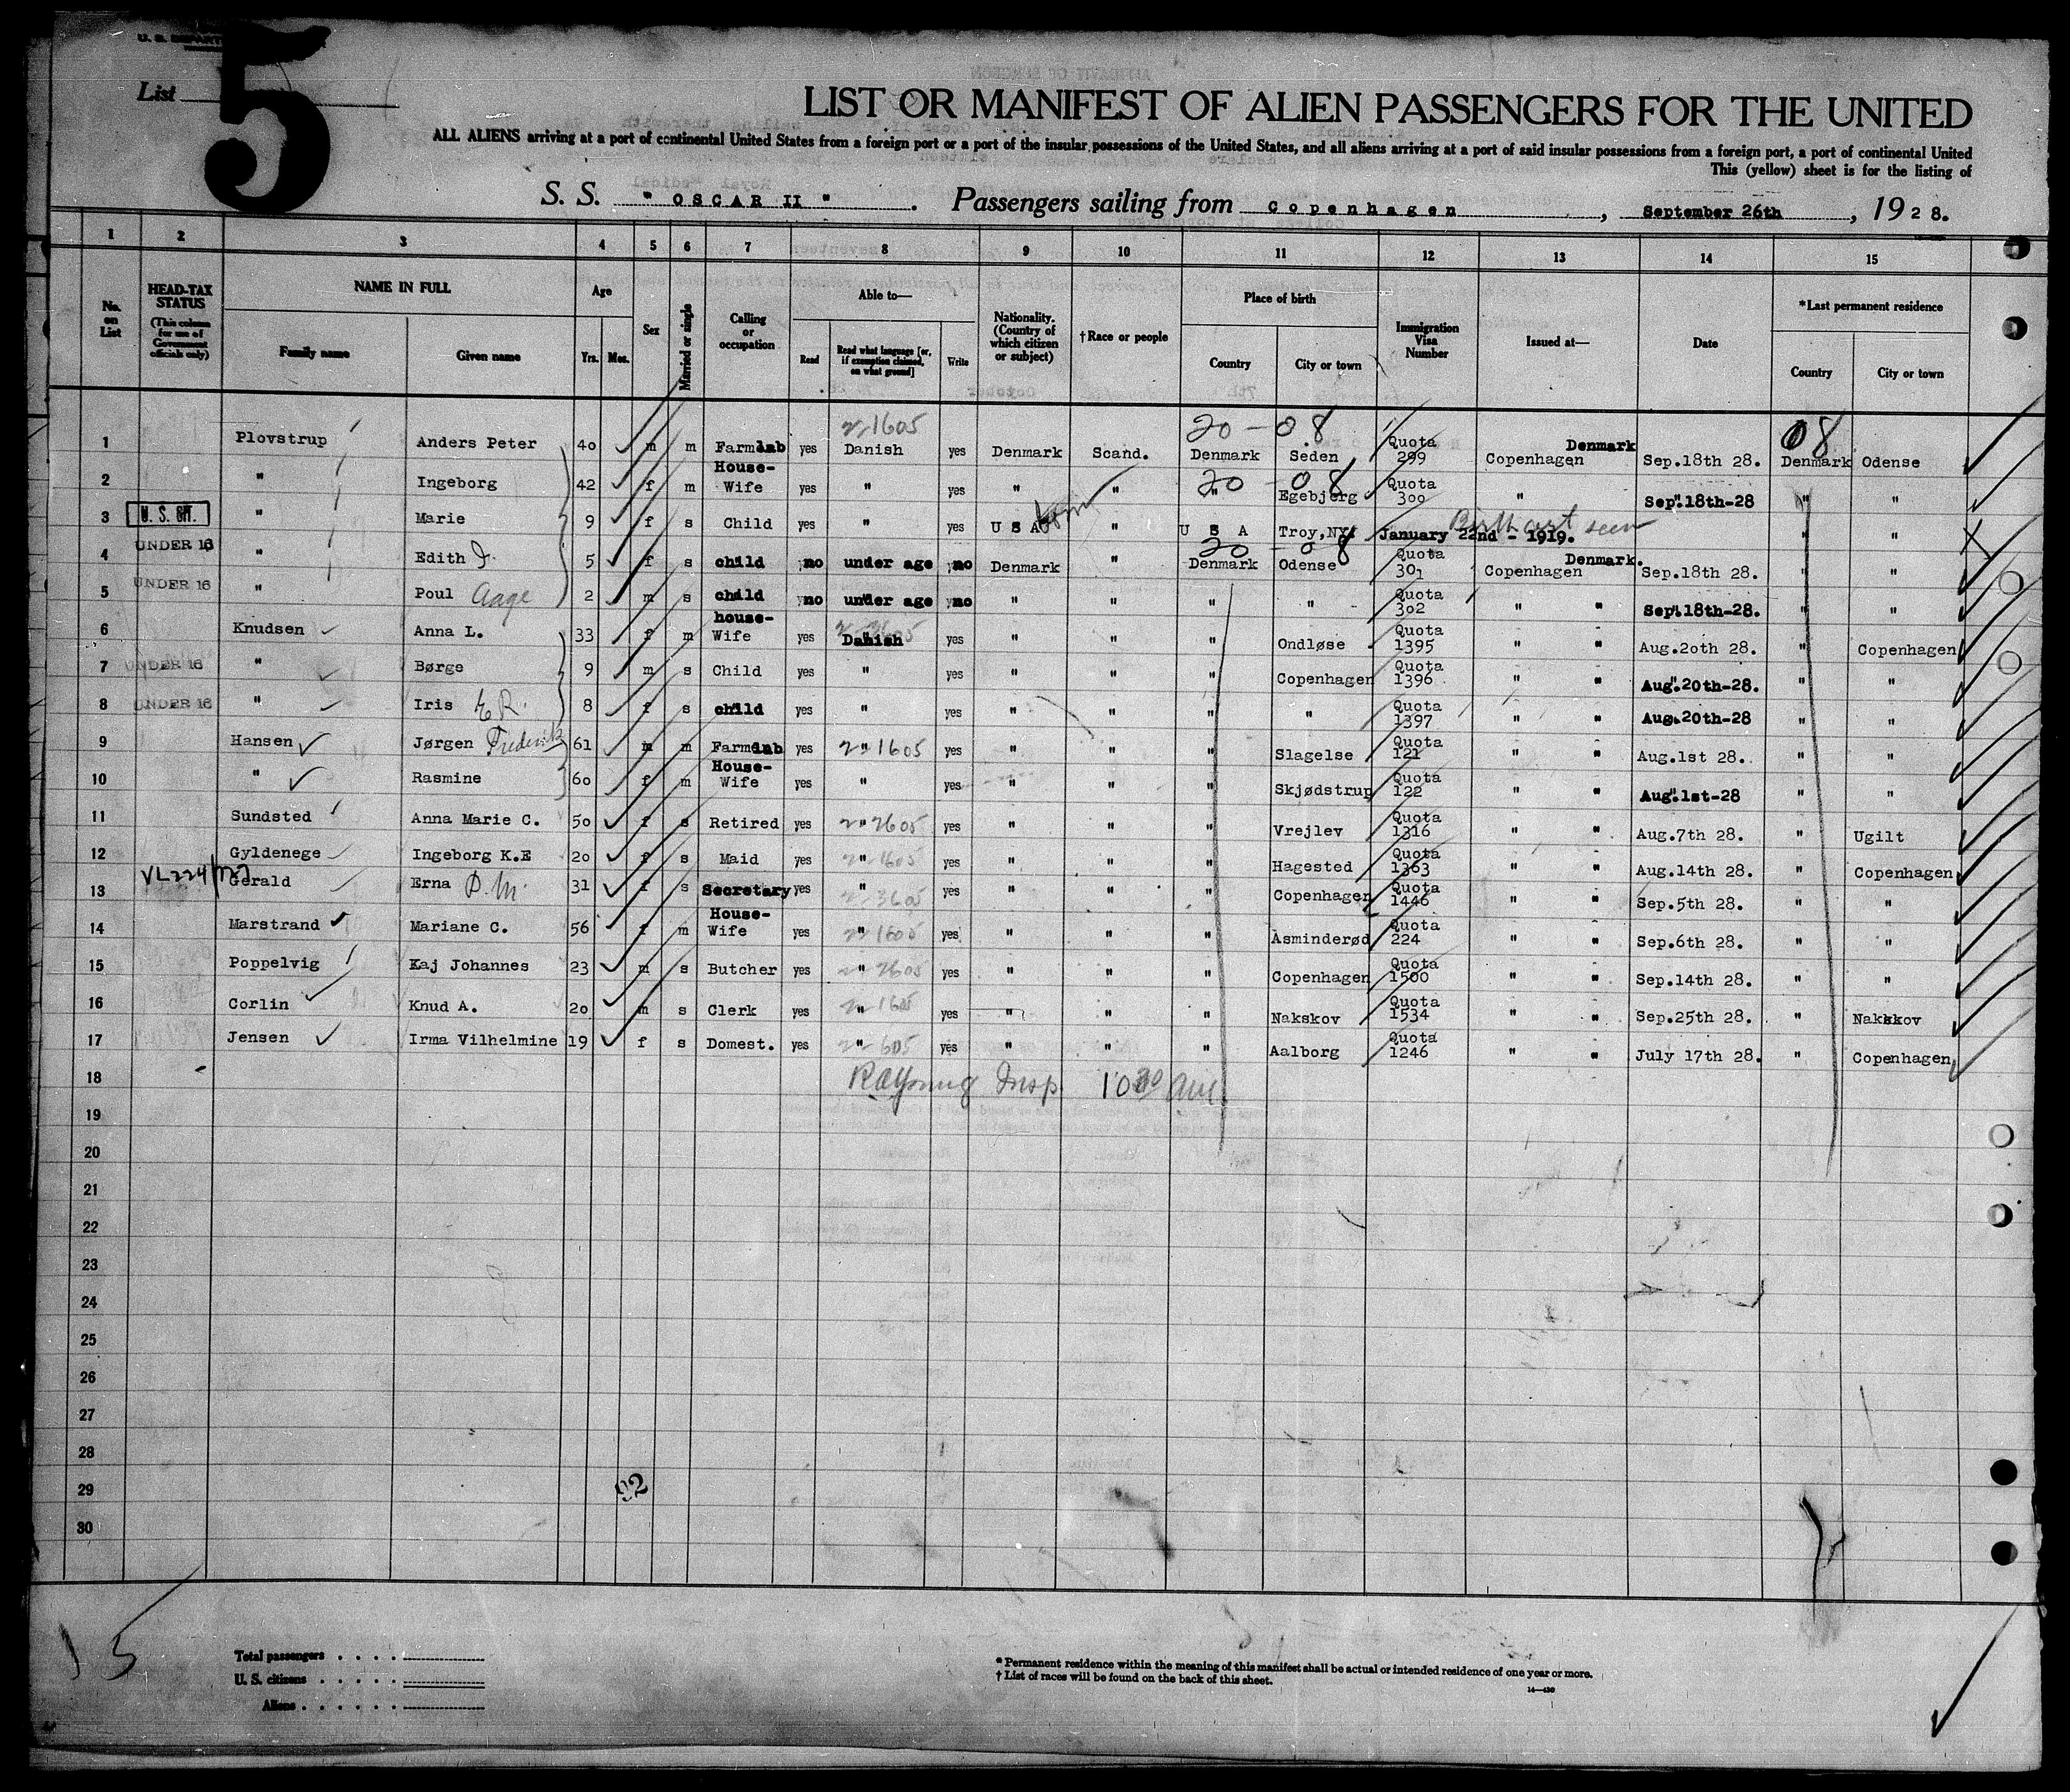 List 5
LIST OR MANIFEST OF ALIEN PASSENGERS FOR THE UNITED
ALL ALIENS arriving at a port of continental United States from a foreign port or a port of the insular possessions of the United States, and all aliens arriving at a port of said insular possessions from a foreign port, a port of continental United
This (yellow) sheet is for the listing of
S. S. " OSCAR II " . Passengers sailing from Copenhagen , September 26th , 1928.
1 2 3 4 5 6 7 8 9 10 11 12 13 14 15
No. on List HEAD-TAX STATUS (This column for use of Government officials only) NAME IN FULL Family name Given name Age Yrs. Mos. Sex Married or single Calling or occupation Able to— Read Read what language [or, if exemption claimed, on what ground] Write Nationality. (Country of which citizen or subject) †Race or people Place of birth Country City or town Immigration Visa Number Issued at— Date *Last permanent residence Country City or town
1605 20-08 08
1 Plovstrup Anders Peter 40 m m Farmlab yes Danish yes Denmark Scand. Denmark Seden Quota 299 Copenhagen Denmark Sep.18th 28. Denmark Odense
2 " Ingeborg 42 f m House-Wife yes " yes " " 20-08 " Egebjerg Quota 300 " Sep.18th-28 " "
3 U. S. CIT. " Marie 9 f s Child yes " yes U S A " U S A Troy,NY. January 22nd - 1919. Birth cert seen " "
4 UNDER 16 " Edith J. 5 f s child no under age no Denmark " 20-08 Denmark Odense Quota 301 Copenhagen Denmark. Sep.18th 28. " "
5 UNDER 16 " Poul Aage 2 m s child no under age no " " " " Quota 302 " " Sep.18th-28. " "
6 Knudsen Anna L. 33 f m house-Wife yes Danish yes " " " Ondløse Quota 1395 " " Aug.20th 28. " Copenhagen
7 UNDER 16 " Børge 9 m s Child yes " yes " " " Copenhagen Quota 1396 " " Aug.20th-28. " "
8 UNDER 16 " Iris E.R. 8 f s child yes " yes " " " " Quota 1397 " " Aug.20th-28 " "
9 Hansen Jørgen Frederik 61 m m Farmlab yes " 1605 yes " " " Slagelse Quota 121 " " Aug.1st 28. " "
10 " Rasmine 60 f m House-Wife yes " yes " " " Skjødstrup Quota 122 " " Aug.1st-28 " "
11 Sundsted Anna Marie C. 50 f s Retired yes " 2605 yes " " " Vrejlev Quota 1316 " " Aug.7th 28. " Ugilt
12 Gyldenege Ingeborg K.E 20 f s Maid yes " 1605 yes " " " Hagested Quota 1363 " " Aug.14th 28. " Copenhagen
13 Gerald Erna D.M. 31 f s Secretary yes " 3605 yes " " " Copenhagen Quota 1446 " " Sep.5th 28. " "
14 Marstrand Mariane C. 56 f m House-Wife yes " 1605 yes " " " Asminderød Quota 224 " " Sep.6th 28. " "
15 Poppelvig Kaj Johannes 23 m s Butcher yes " 2605 yes " " " Copenhagen Quota 1500 " " Sep.14th 28. " "
16 Corlin Knud A. 20 m s Clerk yes " 1605 yes " " " Nakskov Quota 1534 " " Sep.25th 28. " Nakskov
17 Jensen Irma Vilhelmine 19 f s Domest. yes " 605 yes " " " Aalborg Quota 1246 " " July 17th 28. " Copenhagen
18 RA Young Insp. 10 30 am
19
20
21
22
23
24
25
26
27
28
29
30
92
15
Total passengers
U. S. citizens
Aliens
* Permanent residence within the meaning of this manifest shall be actual or intended residence of one year or more.
† List of races will be found on the back of this sheet.
14—430